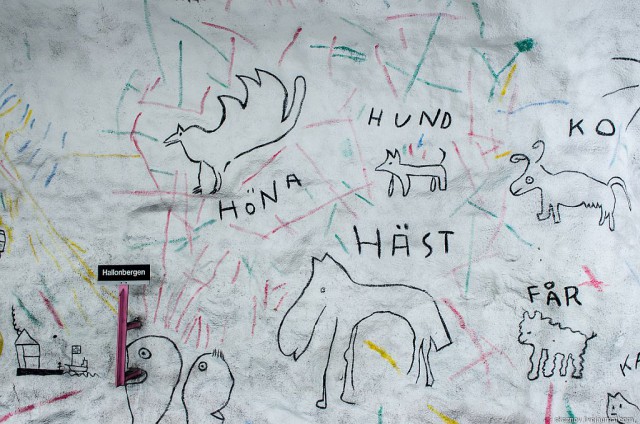 HUND
KO
HÖNA
HÄST
Hallonbergen
FÅR